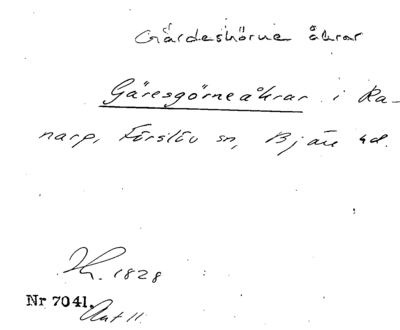 Gärdeshörne åkrar
Gäresgörneåkrar i Ra-
narp, Förslöv sn, Bjäre hd.
Th. 1828
Nr 7041.
Ant 11.